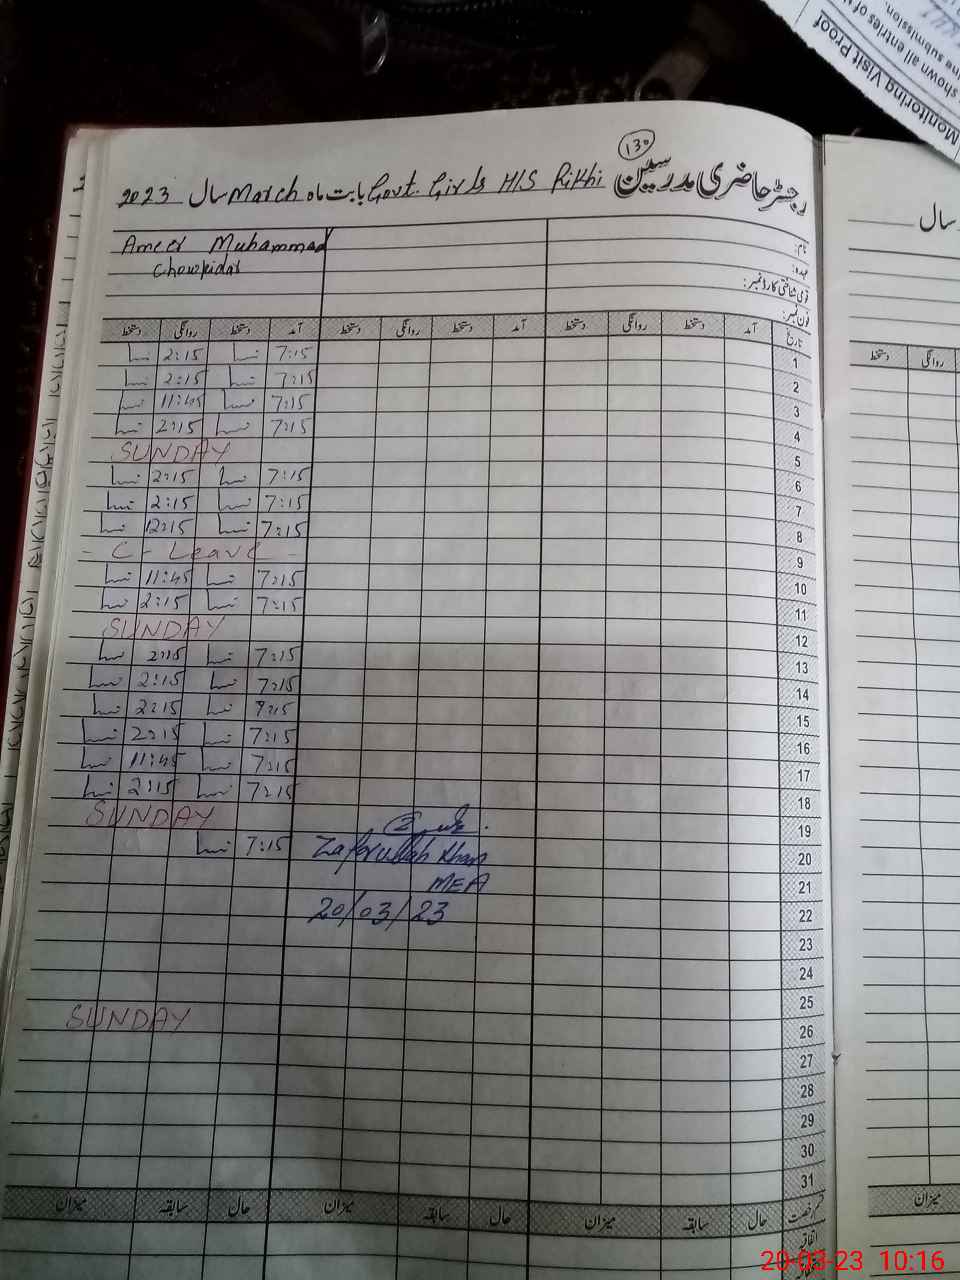 Monitoring Visit Proof
shown all entries of
submission.
130
رجسٹر حاضری مدرسین Govt. Girls H/S Rikhi بابت ماہ March سال 2023
سال
نام:
Ameer Muhammad
عہدہ:
Chowkidar
قومی شناختی کارڈ نمبر:
فون نمبر:
تاریخ آمد دستخط روانگی دستخط آمد دستخط روانگی دستخط آمد دستخط روانگی دستخط
روانگی دستخط
1 7:15 2:15
2 7:15 2:15
3 7:15 11:45
4 7:15 2:15
5 SUNDAY
6 7:15 2:15
7 7:15 2:15
8 7:15 12:15
9 - C - Leave -
10 7:15 11:45
11 7:15 2:15
12 SUNDAY
13 7:15 2:15
14 7:15 2:15
15 7:15 2:15
16 7:15 2:15
17 7:15 11:45
18 7:15 2:15
19 SUNDAY
20 7:15 Zafarullah Khan
21 MEA
22 20/03/23
23
24
25
26 SUNDAY
27
28
29
30
31
حال سابقہ میزان حال سابقہ میزان حال سابقہ میزان
میزان
اتفاقیہ
20-03-23 10:16